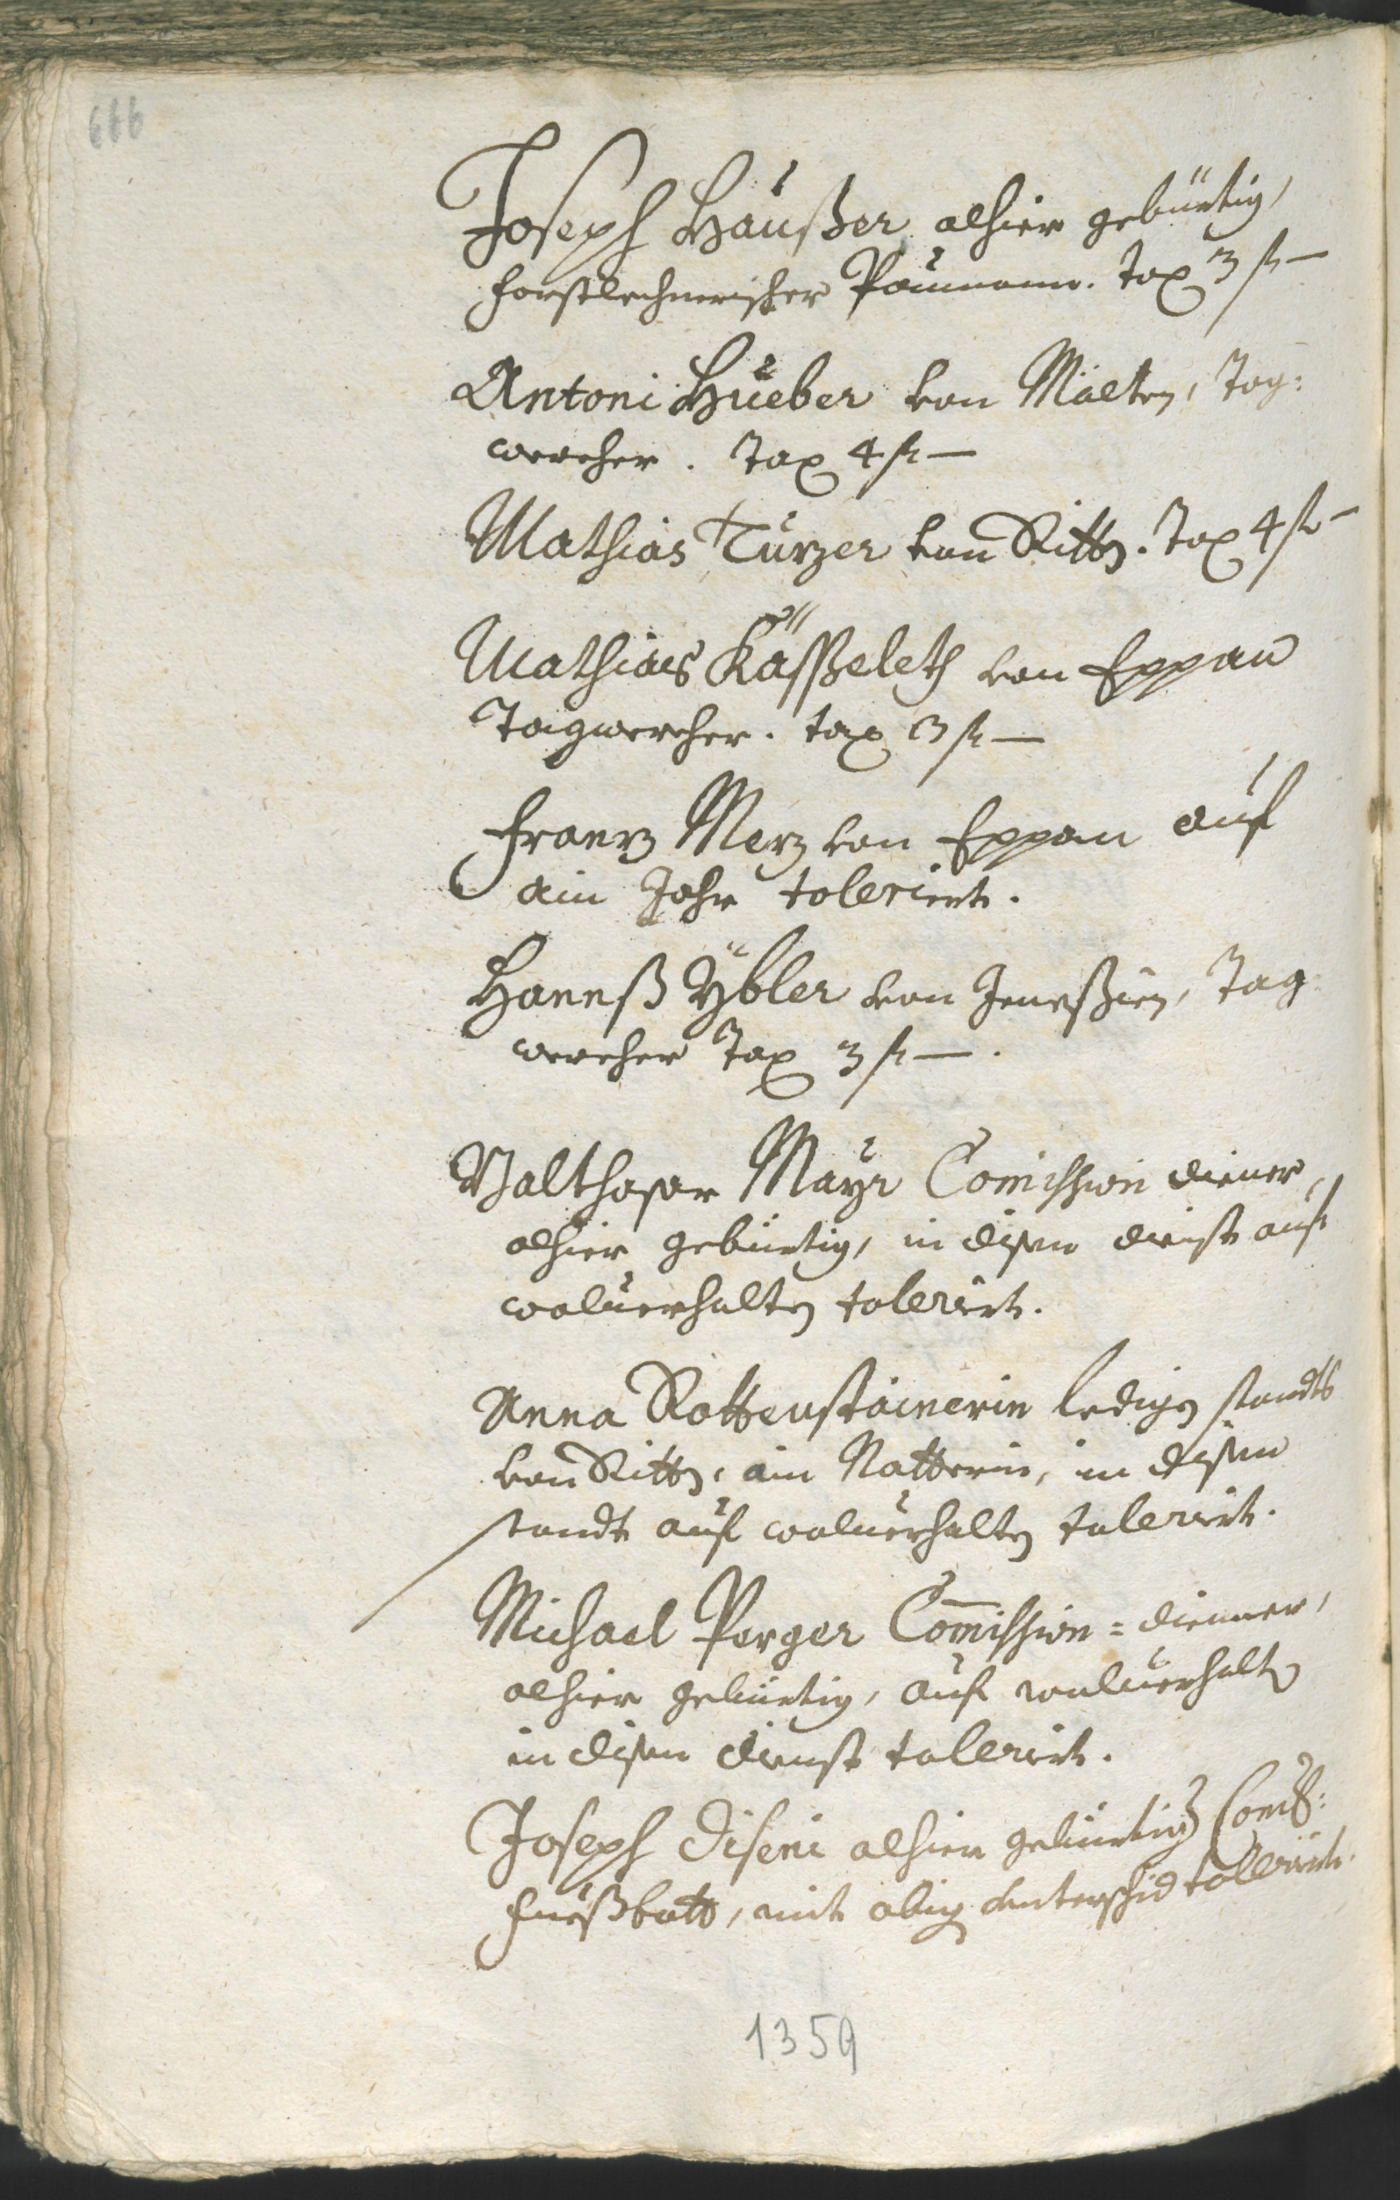 666
Joseph Haußer alhier gebürtig,
Forstlechnerischer Paumann. Tax 3 fl —
Antoni Hueber von Mölten, Tag:
wercher. Tax 4 fl —
Mathias Türzer von Ritten. Tax 4 fl —
Mathias Kässßeleth von Eppan
Tagwercher. tax 3 fl —
Franz Merz von Eppan auf
ain Jahr tolerirt.
Hannß Ybler von Jeneßien, Tag
wercher Tax 3 fl —.
Balthasar Mayr Comission diener,
alhier gebürtig, in disem dienst auf
woluerhalten tolerirt.
Anna Rottenstainerin ledigen standts
von Ritten, ain Natterin, in disem
standt auf woluerhalten tolerirt.
Michael Perger Commission=dienner,
alhier gebürtig, auf woluerhalten
in disem dienst tolerirt.
Joseph Diseni alhier gebürtig Comiss:
Fueßbott, mit obigen unterschid tolerirt.
1359